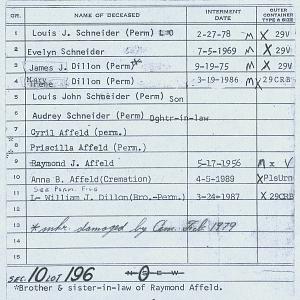 GR. NAME OF DECEASED INTERMENT DATE OUTER CONTAINER TYPE & SIZE
1 Louis J. Schneider (Perm) 2-27-78 M X 29V
2 Evelyn Schneider 7-5-1969 M X 29V
3 James J. Dillon (Perm)* 9-19-75 M X 29V
4 Mary Irene Dillon (Perm) 3-19-1986 M X 29CRB
5 Louis John Schneider (Perm) Son
6 Audrey Schneider (Perm) Dghtr-in-law
7 Cyril Affeld (perm.)
8 Priscilla Affeld (Perm.)
9 Raymond J. Affeld 5-17-1956 M x V
10 Anna B. Affeld (Cremation) 4-5-1989 X PlsUrn
See Perm. File
11 L- William J. Dillon (Bro.-Perm.) 3-24-1987 X 29CRB
12
13 * mkr. damaged by Cem. Feb 1979
14
SEC. 10 LOT 196 N S E W
*Brother & sister-in-law of Raymond Affeld.